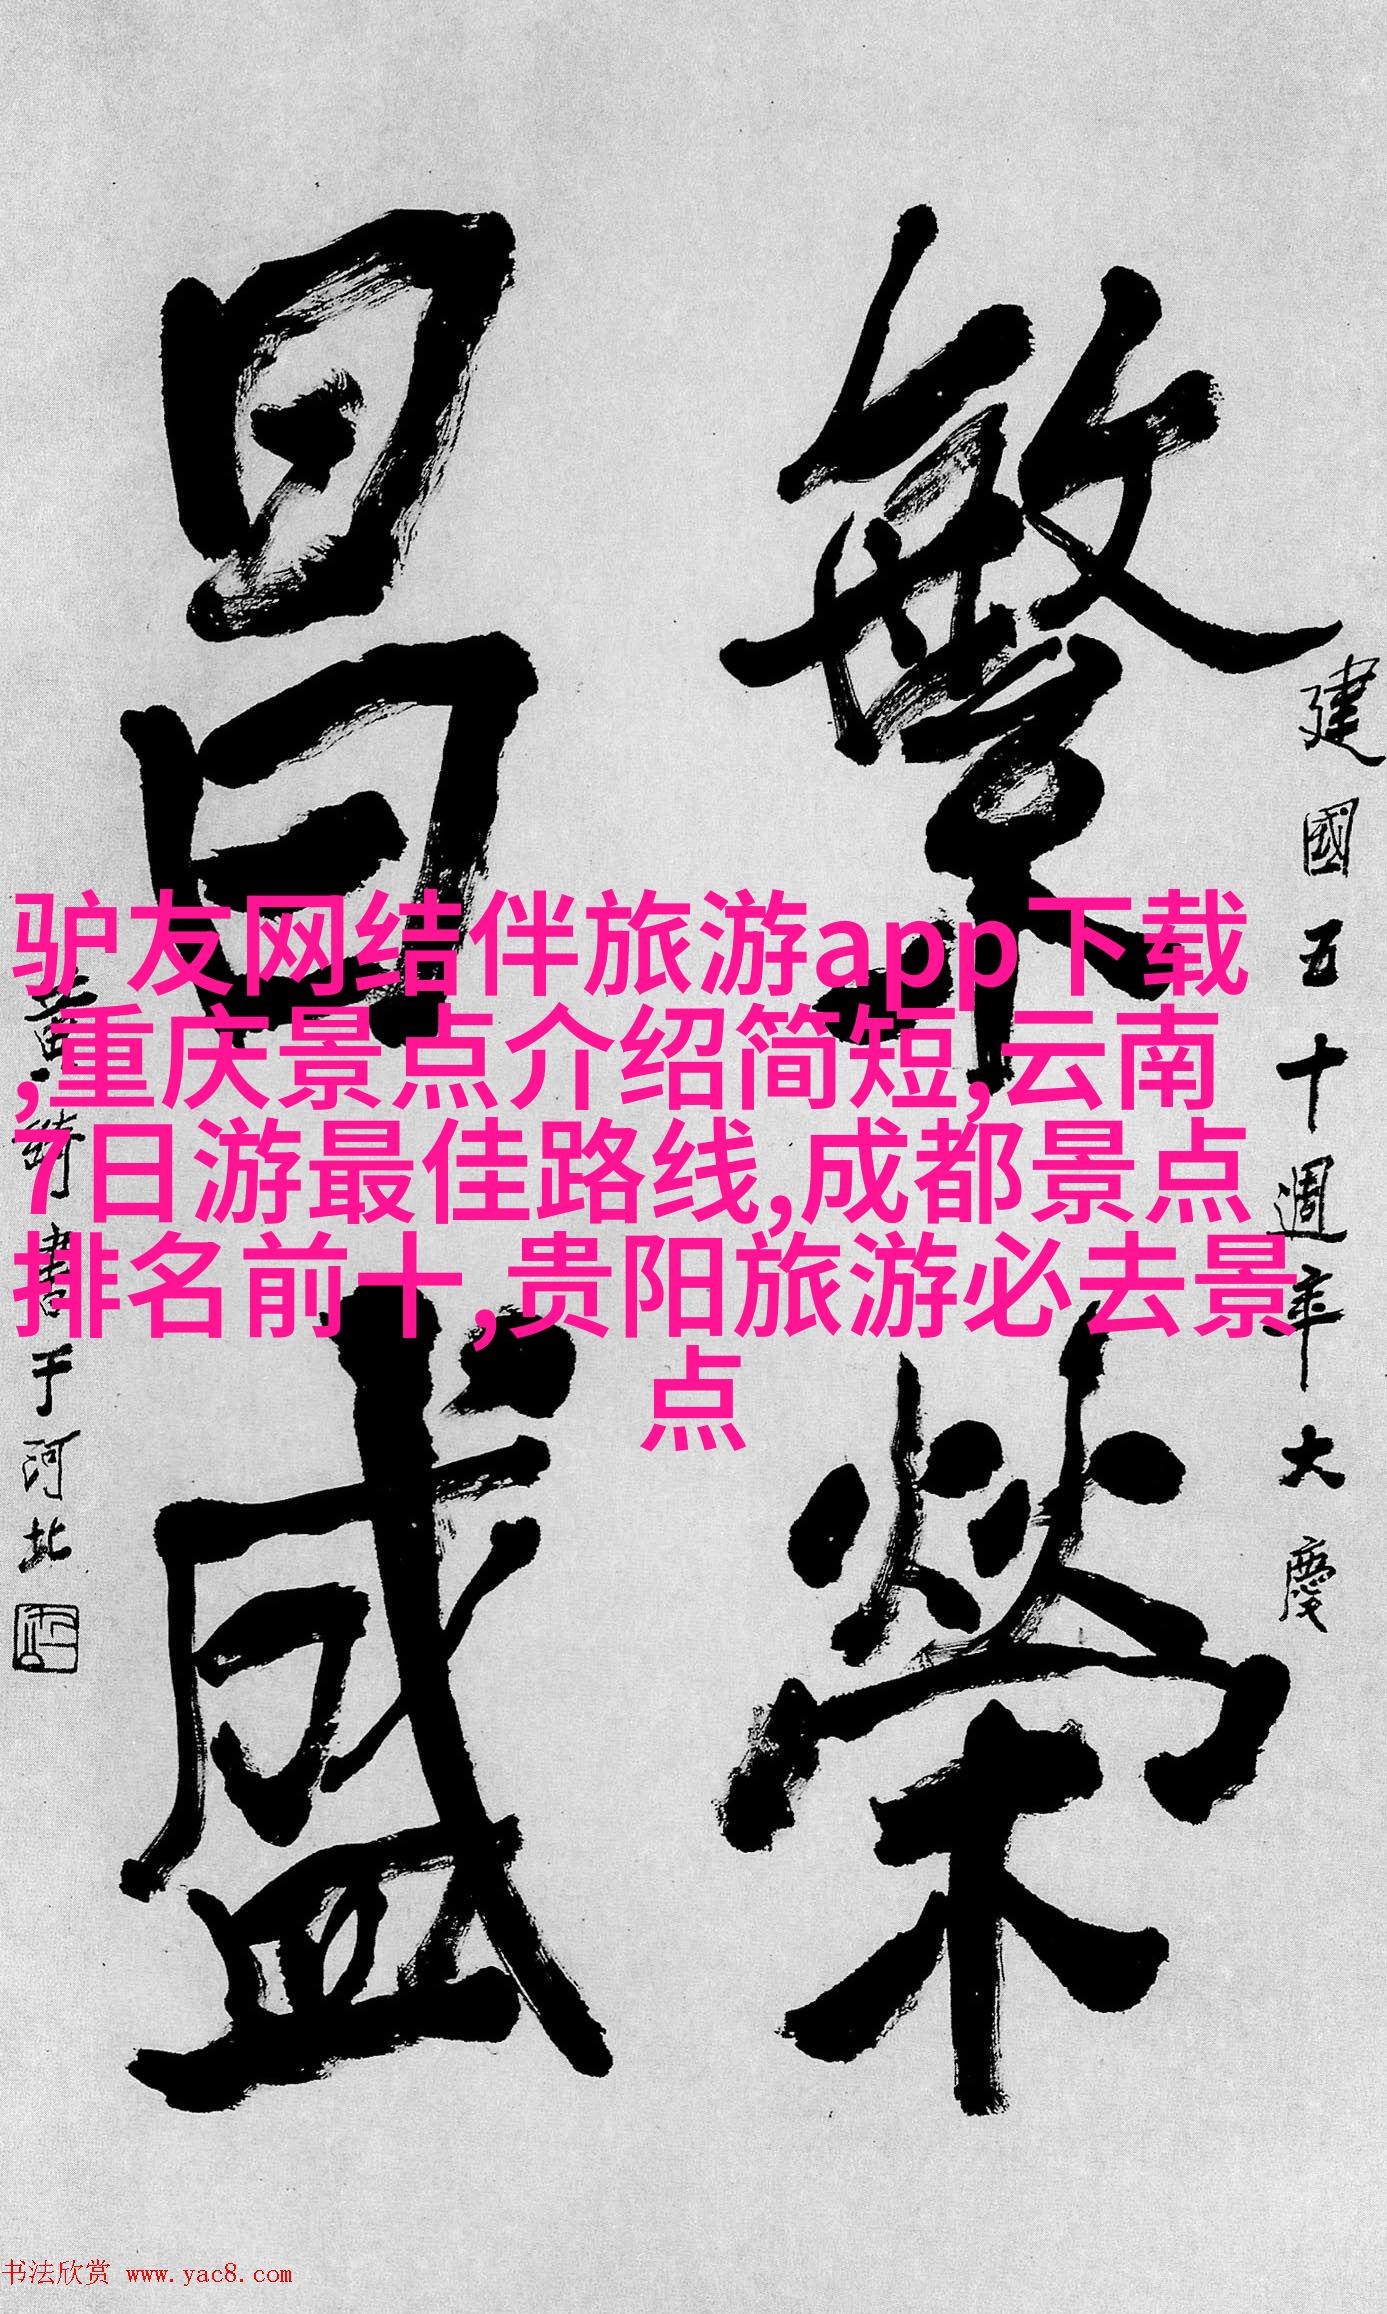 繁榮
昌盛
建國五十週年大慶
黄绮書于河北
驴友网结伴旅游app下载
,重庆景点介绍简短,云南
7日游最佳路线,成都景点
排名前十,贵阳旅游必去景
点
书法欣赏 www.yac8.com